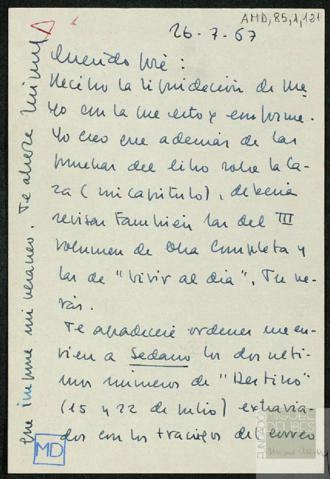 AMD, 85, 1, 121
26-7-67
Querido José:
Recibo la liquidación de Ma-
yo con la que estoy conforme.
Yo creo que además de las
pruebas del libro sobre la Ca-
za (mi capítulo), debería
revisar también las del III
volumen de Obra Completa y
las de "Vivir al día". Tu ve-
rás.
Te agradeceré ordenes me en-
vien a Sedano los dos últi-
mos números de "Destino"
(15 y 22 de julio) extravia-
dos con los tráfagos del correo
que impone mi veraneo. Te abraza Miguel
MD
FUNDACIÓN
MIGUEL
DELIBES